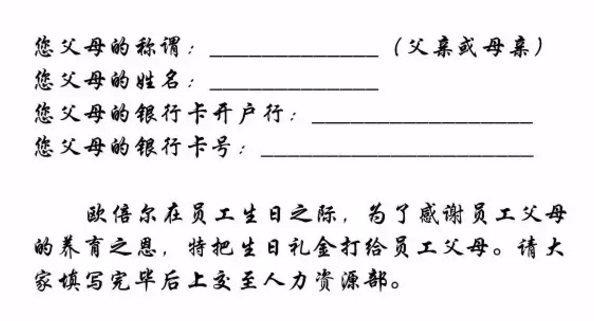 您父母的称谓：______________（父亲或母亲）
您父母的姓名：______________
您父母的银行卡开户行：__________________
您父母的银行卡号：______________________
欧倍尔在员工生日之际，为了感谢员工父母
的养育之恩，特把生日礼金打给员工父母。请大
家填写完毕后上交至人力资源部。